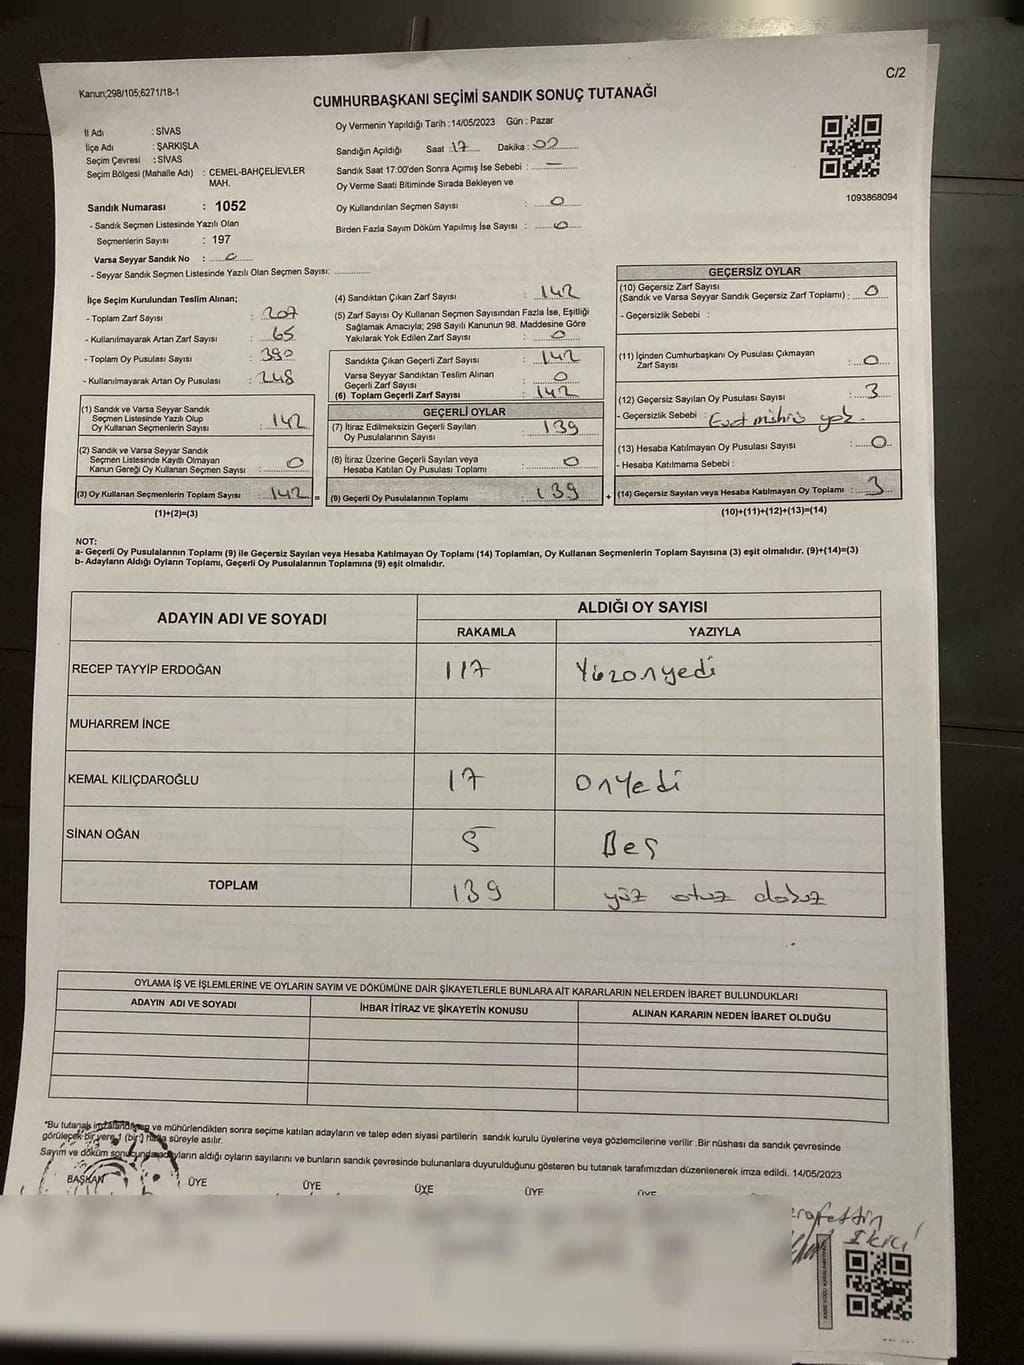 C/2
Kanun;298/105,6271/18-1
CUMHURBAŞKANI SEÇİMİ SANDIK SONUÇ TUTANAĞI
İl Adı : SİVAS
İlçe Adı : ŞARKIŞLA
Seçim Çevresi : SİVAS
Seçim Bölgesi (Mahalle Adı) : CEMEL-BAHÇELİEVLER
MAH.
Sandık Numarası : 1052
- Sandık Seçmen Listesinde Yazılı Olan
Seçmenlerin Sayısı : 197
Varsa Seyyar Sandık No : 0
- Seyyar Sandık Seçmen Listesinde Yazılı Olan Seçmen Sayısı: ............
Oy Vermenin Yapıldığı Tarih : 14/05/2023 Gün : Pazar
Sandığın Açıldığı Saat : 17 Dakika : 00
Sandık Saat 17:00'den Sonra Açımış İse Sebebi : —
Oy Verme Saati Bitiminde Sırada Bekleyen ve
Oy Kullandırılan Seçmen Sayısı : 0
Birden Fazla Sayım Döküm Yapılmış İse Sayısı : 0
1093868094
İlçe Seçim Kurulundan Teslim Alınan;
- Toplam Zarf Sayısı : 207
- Kullanılmayarak Artan Zarf Sayısı : 65
- Toplam Oy Pusulası Sayısı : 390
- Kullanılmayarak Artan Oy Pusulası : 248
(1) Sandık ve Varsa Seyyar Sandık
Seçmen Listesinde Yazılı Olup
Oy Kullanan Seçmenlerin Sayısı : 142
(2) Sandık ve Varsa Seyyar Sandık
Seçmen Listesinde Kayıtlı Olmayan
Kanun Gereği Oy Kullanan Seçmen Sayısı : 0
(3) Oy Kullanan Seçmenlerin Toplam Sayısı : 142 =
(1)+(2)=(3)
(4) Sandıktan Çıkan Zarf Sayısı : 142
(5) Zarf Sayısı Oy Kullanan Seçmen Sayısından Fazla İse, Eşitliği
Sağlamak Amacıyla; 298 Sayılı Kanunun 98. Maddesine Göre
Yakılarak Yok Edilen Zarf Sayısı : 0
Sandıkta Çıkan Geçerli Zarf Sayısı : 142
Varsa Seyyar Sandıktan Teslim Alınan
Geçerli Zarf Sayısı : 0
(6) Toplam Geçerli Zarf Sayısı : 142
GEÇERLİ OYLAR
(7) İtiraz Edilmeksizin Geçerli Sayılan
Oy Pusulalarının Sayısı : 139
(8) İtiraz Üzerine Geçerli Sayılan veya
Hesaba Katılan Oy Pusulası Toplamı : 0
(9) Geçerli Oy Pusulalarının Toplamı : 139 +
GEÇERSİZ OYLAR
(10) Geçersiz Zarf Sayısı
(Sandık ve Varsa Seyyar Sandık Geçersiz Zarf Toplamı) : 0
- Geçersizlik Sebebi :
(11) İçinden Cumhurbaşkanı Oy Pusulası Çıkmayan
Zarf Sayısı : 0
(12) Geçersiz Sayılan Oy Pusulası Sayısı : 3
- Geçersizlik Sebebi : Evet mührü yok.
(13) Hesaba Katılmayan Oy Pusulası Sayısı : 0
- Hesaba Katılmama Sebebi :
(14) Geçersiz Sayılan veya Hesaba Katılmayan Oy Toplamı : 3
(10)+(11)+(12)+(13)=(14)
NOT:
a- Geçerli Oy Pusulalarının Toplamı (9) ile Geçersiz Sayılan veya Hesaba Katılmayan Oy Toplamı (14) Toplamları, Oy Kullanan Seçmenlerin Toplam Sayısına (3) eşit olmalıdır. (9)+(14)=(3)
b- Adayların Aldığı Oyların Toplamı, Geçerli Oy Pusulalarının Toplamına (9) eşit olmalıdır.
ADAYIN ADI VE SOYADI ALDIĞI OY SAYISI
RAKAMLA YAZIYLA
RECEP TAYYİP ERDOĞAN 117 Yüzonyedi
MUHARREM İNCE
KEMAL KILIÇDAROĞLU 17 Onyedi
SİNAN OĞAN 5 Beş
TOPLAM 139 yüz otuz dokuz
OYLAMA İŞ VE İŞLEMLERİNE VE OYLARIN SAYIM VE DÖKÜMÜNE DAİR ŞİKAYETLERLE BUNLARA AİT KARARLARIN NELERDEN İBARET BULUNDUKLARI
ADAYIN ADI VE SOYADI İHBAR İTİRAZ VE ŞİKAYETİN KONUSU ALINAN KARARIN NEDEN İBARET OLDUĞU
*Bu tutanak imzalandıktan ve mühürlendikten sonra seçime katılan adayların ve talep eden siyasi partilerin sandık kurulu üyelerine veya gözlemcilerine verilir .Bir nüshası da sandık çevresinde
görülecek bir yere 1 (bir) hafta süreyle asılır.
Sayım ve döküm sonucunda adayların aldığı oyların sayılarını ve bunların sandık çevresinde bulunanlara duyurulduğunu gösteren bu tutanak tarafımızdan düzenlenerek imza edildi. 14/05/2023
BAŞKAN ÜYE ÜYE ÜYE ÜYE ÜYE